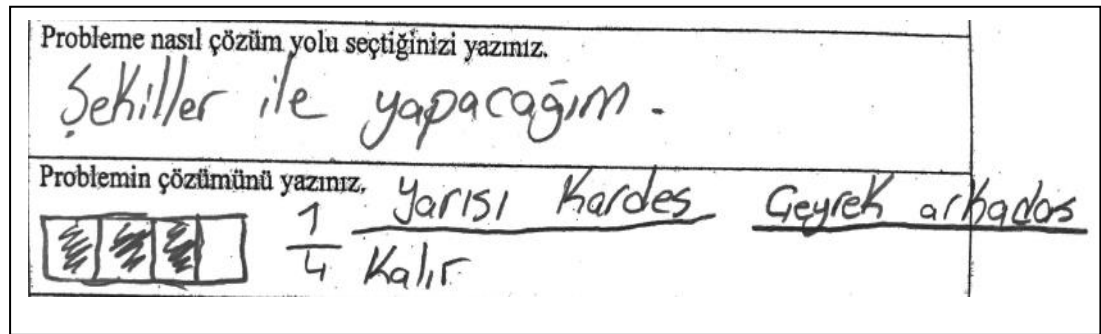 Probleme nasıl çözüm yolu seçtiğinizi yazınız.
Şekiller ile yapacağım.
Problemin çözümünü yazınız.
1/4 Yarısı Kardes Çeyrek arkadas
Kalır